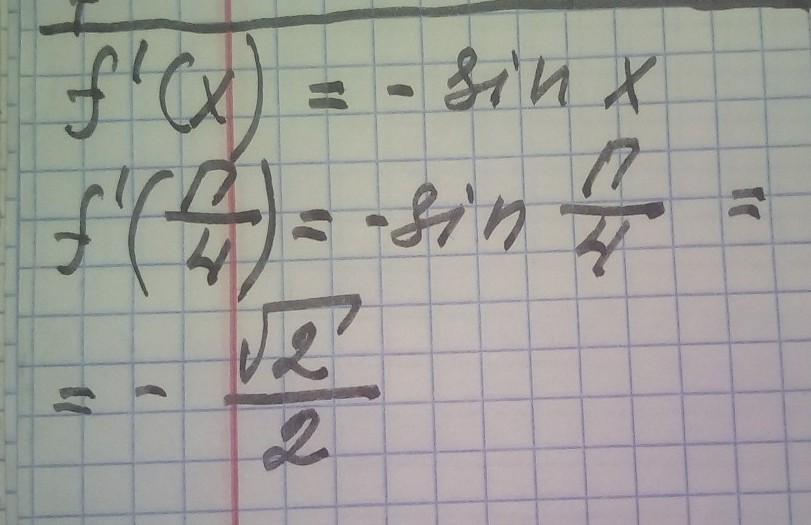 f'(x) = - sin x
f'(π/4) = - sin π/4 =
= - √2/2